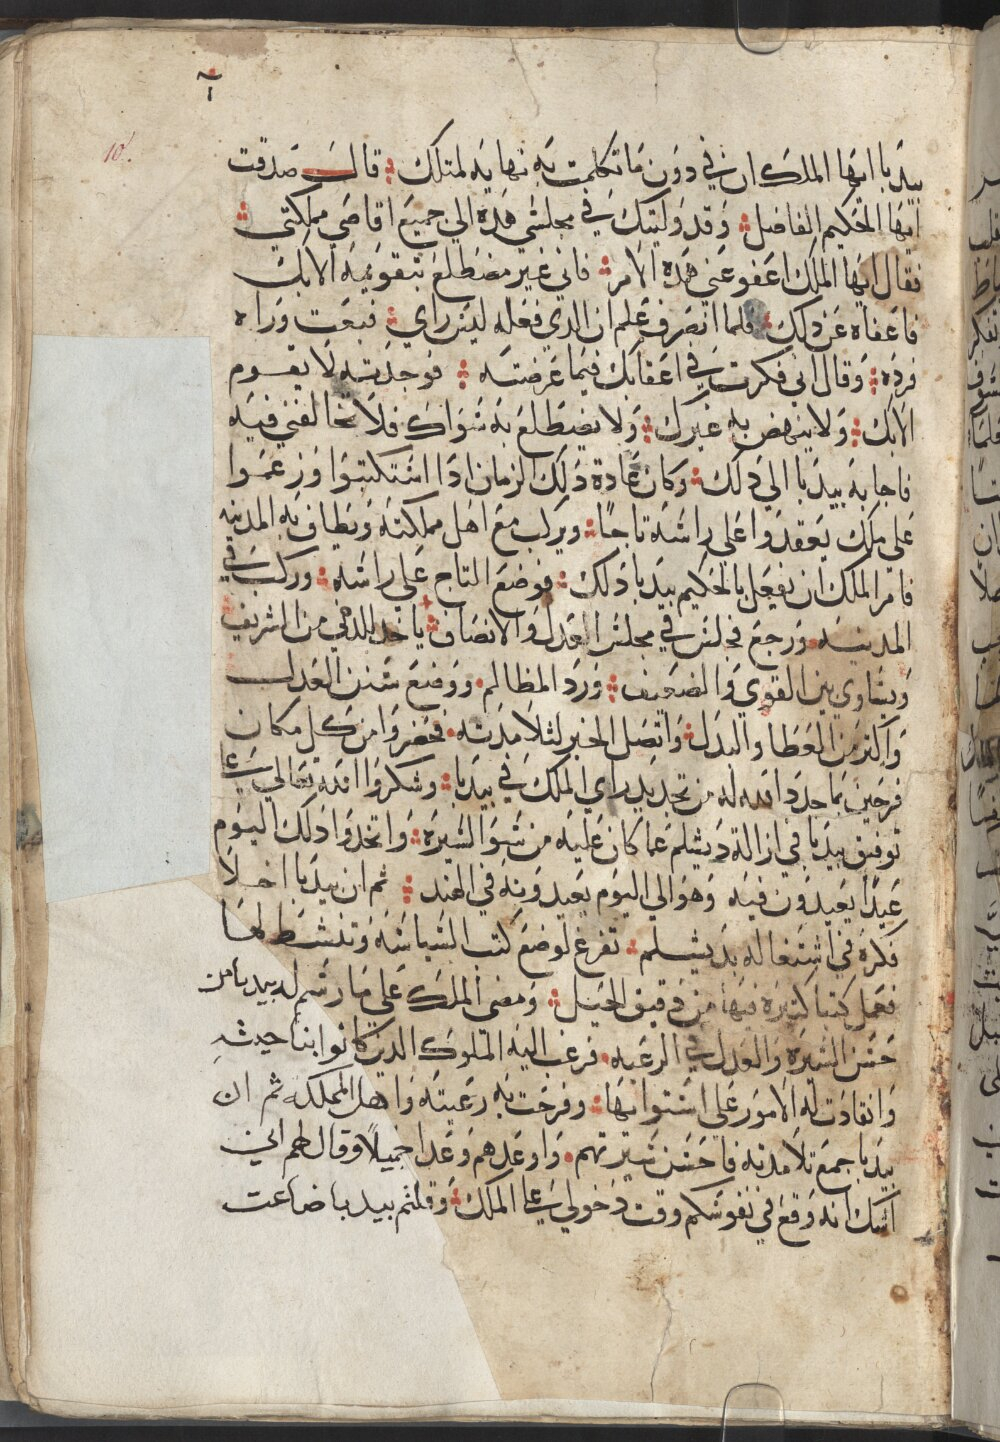 10.
بيدبا ايها الملك ان في دون ما تكلمت به نهايه لمثلك قال صدقت
ايها الحكيم الفاضل وقد وليتك في مجلسي هذه الي جميع اقاصي مملكتي
فقال ايها الملك اعفو عني هذه الامر فاني غير مضطلع بتقويمه الابك
فاعفاه عن ذلك فلما انصرف علم ان الذي فعله ليس راي فبعث وراه
فرده وقال اني فكرت في اعفايك فيما عرضته فوجدته لا يقوم
الابك ولا ينهض به غيرك ولا يضطلع به سواك فلا تخالفني فيه
فاجابه بيدبا الي ذلك وكان عادة ذلك الزمان اذا استكتبوا وزعموا
علي ملك يعقدوا علي راسه تاجا ويركب مع اهل مملكته ويطاف به المدينه
فامر الملك ان يفعل بالحكيم بيدبا ذلك فوضع التاج علي راسه وركب في
المدينه ورجع فجلس في مجلس العدل والانصاف ياخذ للدني من الشريف
ويساوي بين القوي والضعيف ورد المظالم ووضع سنن العدل
واكثر من العطا والبدل واتصل الخبر لتلامذته فحضروا من كل مكان
فرحين بما جدد الله له من تجديد راي الملك في بيدبا وشكروا الله تعالي علي
توفيق بيدبا في ازالة دبشلم عما كان عليه من سو السيره واتخذوا ذلك اليوم
عيدا يعيدون فيه وهو الي اليوم يعيدونه في الهند ثم ان بيدبا اخلا
فكره في اشتغاله بدبشلم تفرغ لوضع كتب السياسه وتنشط لها
فعمل كتبا كثيره فيها من دقيق الحيل ومضي الملك علي ما رسم له بيدبا من
حسن السيره والعدل في الرعيه فرغب اليه الملوك الذين كانوا بنا حيثه
وانقادت له الامور علي استوائها وفرحت به رعيته واهل المملكه ثم ان
بيدبا جمع تلامذته فاحسن سيرتهم واوعدهم وعدا جميلا وقال لهم اني
اشك انه وقع في نفوسكم وقت دخولي علي الملك وقلتم بيدبا ضاعت